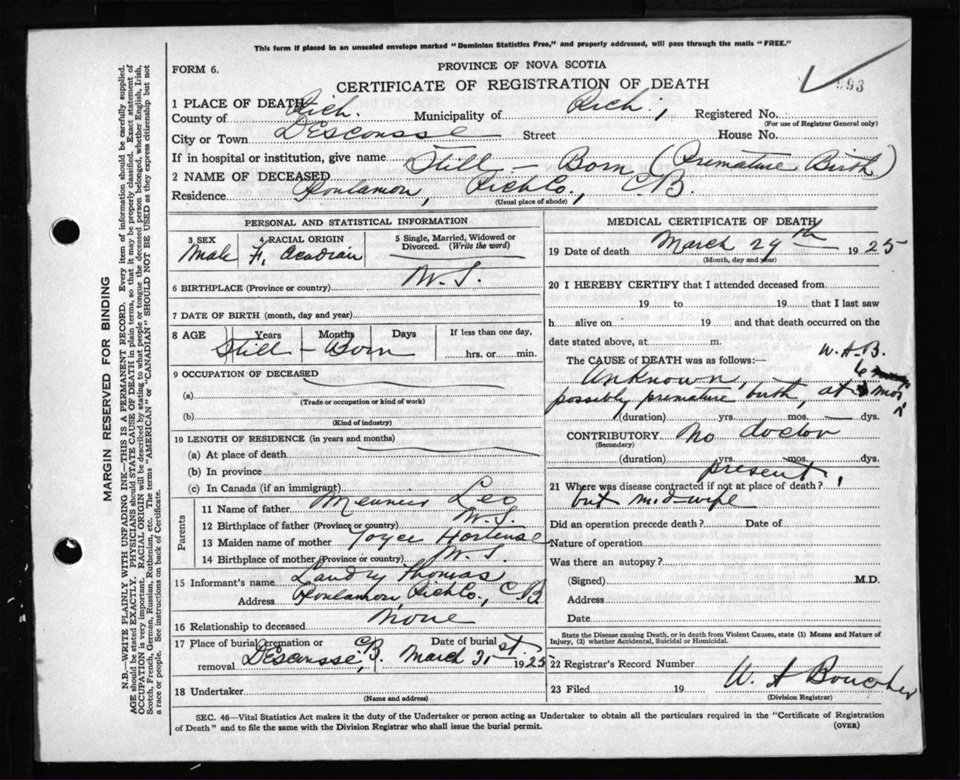 This form if placed in an unsealed envelope marked "Dominion Statistics Free," and properly addressed, will pass through the mails "FREE."
FORM 6.
PROVINCE OF NOVA SCOTIA
CERTIFICATE OF REGISTRATION OF DEATH
993
1 PLACE OF DEATH
County of Rich. Municipality of Rich, Registered No.
(For use of Registrar General only)
City or Town DEscousse Street House No.
If in hospital or institution, give name
2 NAME OF DECEASED Still - Born (Premature Birth)
Residence Poulamon, Rich Co., C.B.
(Usual place of abode)
PERSONAL AND STATISTICAL INFORMATION
3 SEX 4 RACIAL ORIGIN 5 Single, Married, Widowed or Divorced. (Write the word)
Male F. Acadian
6 BIRTHPLACE (Province or country) N.S.
7 DATE OF BIRTH (month, day and year)
8 AGE Years Months Days If less than one day,
Still - Born hrs. or min.
9 OCCUPATION OF DECEASED
(a)
(Trade or occupation or kind of work)
(b)
(Kind of industry)
10 LENGTH OF RESIDENCE (in years and months)
(a) At place of death
(b) In province
(c) In Canada (if an immigrant)
Parents
11 Name of father Meunier Leo
12 Birthplace of father (Province or country) N.S.
13 Maiden name of mother Joyce Hortense
14 Birthplace of mother (Province or country) N.S.
15 Informant's name Landry Thomas
Address Poulamon, Rich Co., C.B.
16 Relationship to deceased None
17 Place of burial, cremation or removal Descousse, C.B. Date of burial March 31st 1925
18 Undertaker
(Name and address)
MEDICAL CERTIFICATE OF DEATH
19 Date of death March 29th 1925
(Month, day and year)
20 I HEREBY CERTIFY that I attended deceased from
19 to 19 that I last saw
h alive on 19 and that death occurred on the
date stated above, at m.
The CAUSE of DEATH was as follows:—
W.A.B.
Unknown, 6
possibly premature birth, at mos
(duration) yrs. mos. dys.
CONTRIBUTORY No doctor
(Secondary)
(duration) yrs. mos. dys.
present,
21 Where was disease contracted if not at place of death?
but midwife
Did an operation precede death? Date of
Nature of operation
Was there an autopsy?
(Signed) M.D.
Address
Date
State the Disease causing Death, or in death from Violent Causes, state (1) Means and Nature of
Injury, (2) whether Accidental, Suicidal or Homicidal.
22 Registrar's Record Number
23 Filed 19 W. A Boucher
(Division Registrar)
SEC. 46—Vital Statistics Act makes it the duty of the Undertaker or person acting as Undertaker to obtain all the particulars required in the "Certificate of Registration
of Death" and to file the same with the Division Registrar who shall issue the burial permit.
(OVER)
MARGIN RESERVED FOR BINDING
N.B.—WRITE PLAINLY WITH UNFADING INK—THIS IS A PERMANENT RECORD. Every item of information should be carefully supplied.
AGE should be stated EXACTLY. PHYSICIANS should STATE CAUSE OF DEATH in plain terms, so that it may be properly classified. Exact statement of
OCCUPATION is very important. RACIAL ORIGIN will be described by stating to what people or tongue the deceased person belonged, whether English, Irish,
Scotch, French, German, Russian, Ruthenian, etc. The terms "AMERICAN" or "CANADIAN" SHOULD NOT BE USED as they express citizenship but not
a race or people. See instructions on back of Certificate.